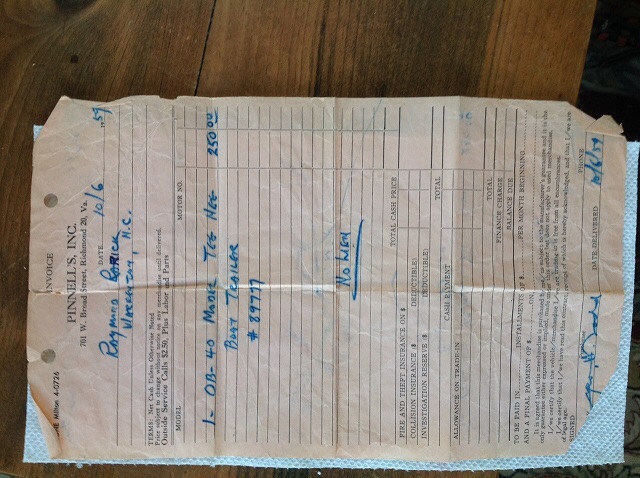 INVOICE
PINNELL'S, INC.
701 W. Broad Street, Richmond 20, Va.
4-0726
DATE 10/6 59
Raymond
N.C.
TERMS: Net Cash Unless Otherwise Noted
Price subject to change without notice on any merchandise until delivered.
Outside Service Calls $2.50, Plus Labor and Parts
MODEL MOTOR NO.
1- OB-40 Model Tee Nee 250 00
Boat Trailer
# 89777
No Lien
TOTAL CASH PRICE
FIRE AND THEFT INSURANCE ON $
COLLISION INSURANCE ($ DEDUCTIBLE)
INVESTIGATION RESERVE ($ DEDUCTIBLE)
TOTAL
CASH PAYMENT
ALLOWANCE ON TRADE-IN
TOTAL
FINANCE CHARGE
BALANCE DUE
TO BE PAID IN INSTALMENTS OF $ PER MONTH BEGINNING
AND A FINAL PAYMENT OF $ ON
It is agreed that this merchandise is purchased by me/us subject to the manufacturer's guarantee and it is the
only guarantee either expressed or implied, made on this order but does not apply to used merchandise.
I/we certify that I/we have read this contract, receipt of which is hereby acknowledged, and that I/we are
of legal age.
PHONE
SIGNED DATE DELIVERED 10/6/59